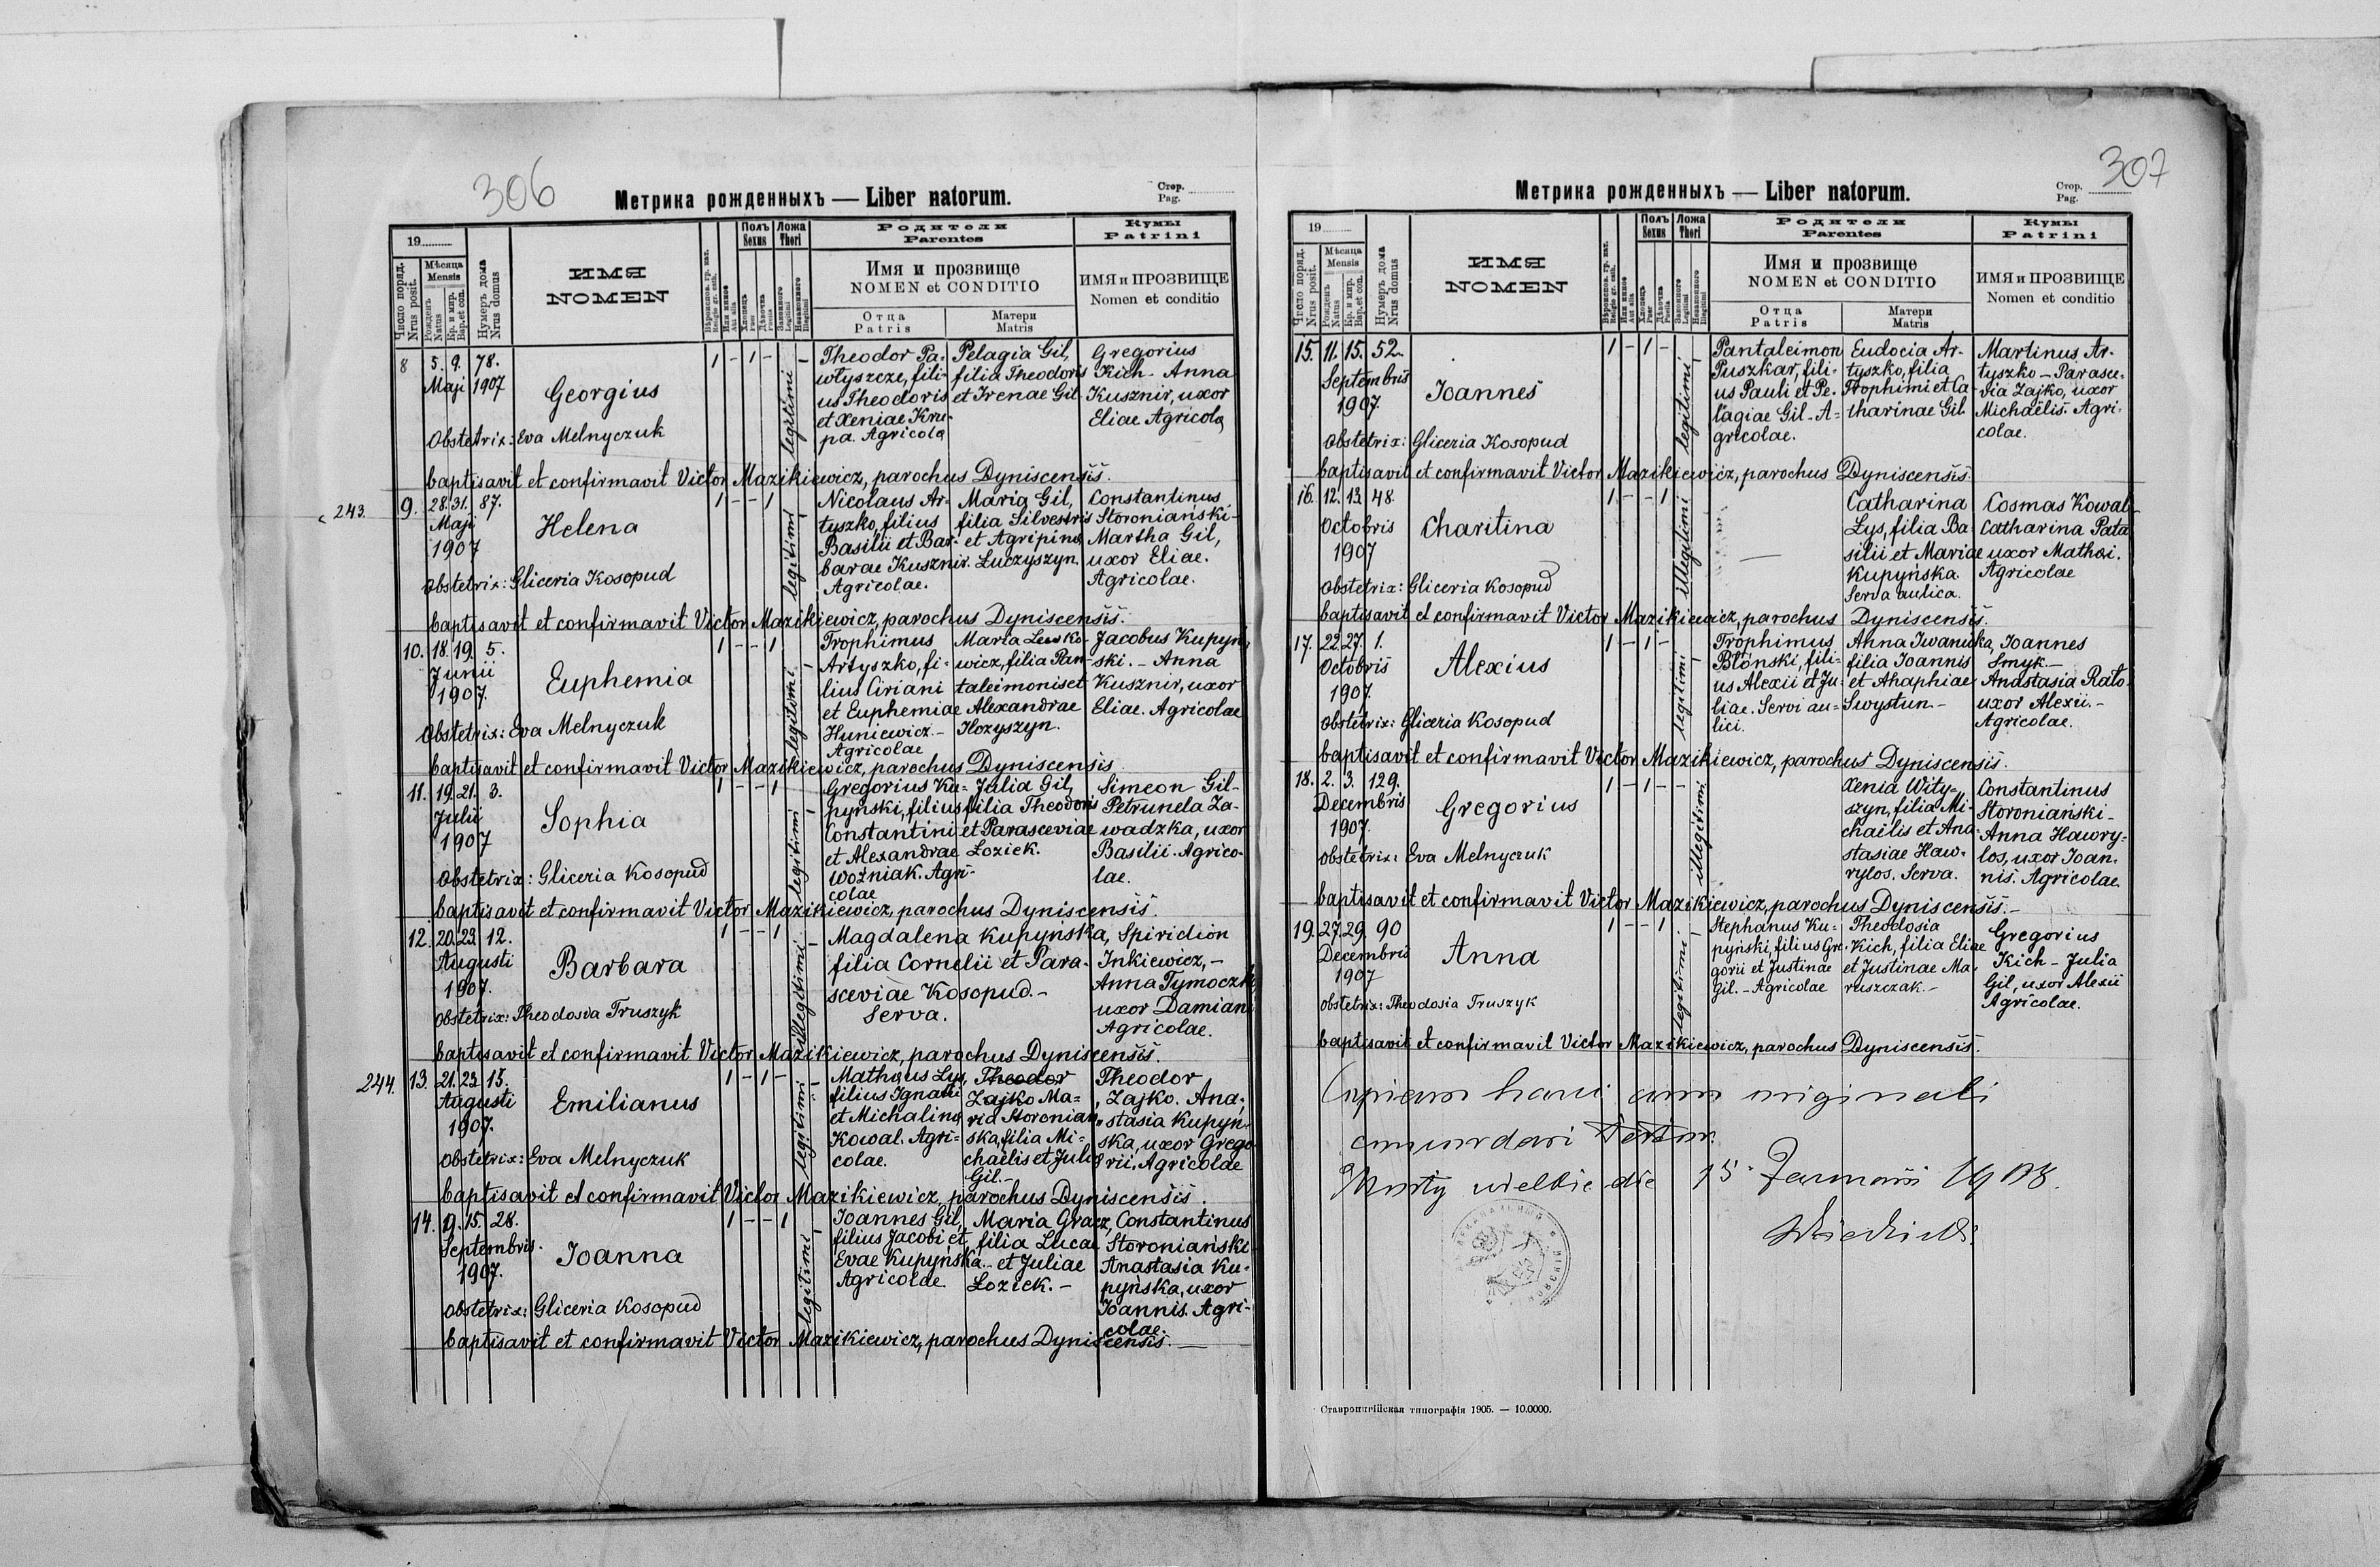 306
Метрика рожденныхъ — Liber natorum.
Стор.
Pag.
19
Число поряд.
Nrus posit.
Мѣсяца
Mensis
Рожденъ
Natus
Кр. и мир.
Bap. et con.
Нумеръ дома
Nrus domus
ИМЯ
NOMEN
Полъ
Sexus
Ложа
Thori
Родители
Parentes
Имя и прозвище
NOMEN et CONDITIO
Отца
Patris
Матери
Matris
Кумы
Patrini
ИМЯ и ПРОЗВИЩЕ
Nomen et conditio
8 5. 9. 78.
Maji 1907
Georgius
1 - 1 -
legitimi
Theodor Pa-
włyszcze, fili-
us Theodoris
et Xeniae Kru-
pa. Agricola
Pelagia Gil,
filia Theodoris
et Irenae Gil
Gregorius
Kich - Anna
Kusznir, uxor
Eliae Agricola
Obstetrix: Eva Melnyczuk
baptisavit et confirmavit Victor Mazikiewicz, parochus Dyniscensis.
243.
9. 28. 31. 87.
Maji
1907
Helena
1 - - 1
legitimi
Nicolaus Ar-
tyszko, filius
Basilii et Bar-
barae Kusznir.
Agricolae.
Maria Gil,
filia Silvestris
et Agripinae
Łuczyszyn.
Constantinus
Storoniański -
Martha Gil,
uxor Eliae.
Agricolae.
Obstetrix: Gliceria Kosopud
baptisavit et confirmavit Victor Mazikiewicz, parochus Dyniscensis.
10. 18. 19. 5.
Junii
1907.
Euphemia
1 - - 1
legitimi
Trophimus
Artyszko, fi-
lius Ciriani
et Euphemiae
Huniewicz. -
Agricolae
Maria Lewko-
wicz, filia Pan-
taleimonis et
Alexandrae
Hozyszyn.
Jacobus Kupyń
ski. - Anna
Kusznir, uxor
Eliae. Agricolae
Obstetrix: Eva Melnyczuk
baptisavit et confirmavit Victor Mazikiewicz, parochus Dyniscensis
11. 19. 21. 3.
Julii
1907
Sophia
1 - - 1
legitimi
Gregorius Ku-
pyński, filius
Constantini
et Alexandrae
Woźniak. Agri-
colae
Julia Gil,
filia Theodoris
et Parasceviae
Łoziek.
Simeon Gil -
Petrunela Za-
wadzka, uxor
Basilii. Agrico-
lae.
Obstetrix: Gliceria Kosopud
baptisavit et confirmavit Victor Mazikiewicz, parochus Dyniscensis.
12. 20. 23. 12.
Augusti
1907.
Barbara
1 - - 1
illegitimi
Magdalena Kupyńska,
filia Cornelii et Para-
sceviae Kosopud. -
Serva.
Spiridion
Inkiewicz, -
Anna Tymoczko
uxor Damiani
Agricolae.
Obstetrix: Theodosia Truszyk
baptisavit et confirmavit Victor Mazikiewicz, parochus Dyniscensis.
244.
13. 21. 23. 15.
Augusti
1907.
Emilianus
1 - 1 -
legitimi
Mathaus Lys,
filius Ignatii
et Michalinae
Kowal. Agri-
colae.
Theodor
Zajko Ma-
ria Storoniań-
ska, filia Mi-
chaëlis et Juliae
Gil. -
Theodor
Zajko. Ana-
stasia Kupyń-
ska, uxor Grego
rii. Agricolae
Obstetrix: Eva Melnyczuk
baptisavit et confirmavit Victor Mazikiewicz, parochus Dyniscensis.
14. 9. 15. 28.
Septembris.
1907.
Joanna
1 - - 1
legitimi
Joannes Gil,
filius Jacobi et
Evae Kupyńska.
Agricolae.
Maria Gracz,
filia Lucae
et Juliae
Łoziek. -
Constantinus
Storoniański
Anastasia Ku-
pyńska, uxor
Joannis. Agri-
colae.
Obstetrix: Gliceria Kosopud
baptisavit et confirmavit Victor Mazikiewicz, parochus Dyniscensis. -
307
Метрика рожденныхъ — Liber natorum.
Стор.
Pag.
19
Число поряд.
Nrus posit.
Мѣсяца
Mensis
Рожденъ
Natus
Кр. и мир.
Bap. et con.
Нумеръ дома
Nrus domus
ИМЯ
NOMEN
Полъ
Sexus
Ложа
Thori
Родители
Parentes
Имя и прозвище
NOMEN et CONDITIO
Отца
Patris
Матери
Matris
Кумы
Patrini
ИМЯ и ПРОЗВИЩЕ
Nomen et conditio
15. 11. 15. 52.
Septembris
1907.
Joannes
1 - 1 -
legitimi
Pantaleimon
Puszkar, fili-
us Pauli et Pe-
lagiae Gil - A-
gricolae.
Eudocia Ar-
tyszko, filia
Trophimi et Ca-
tharinae Gil.
Martinus Ar-
tyszko - Parasce-
via Zajko, uxor
Michaëlis. Agri-
colae.
Obstetrix: Gliceria Kosopud
baptisavit et confirmavit Victor Mazikiewicz, parochus Dyniscensis.
16. 12. 13. 48.
Octobris
1907
Charitina
1 - - 1
illegitimi
Catharina
Lys, filia Ba
silii et Mariae
Kupyńska.
Serva aulica.
Cosmas Kowal -
Catharina Pata
uxor Mathei.
Agricolae
Obstetrix: Gliceria Kosopud
baptisavit et confirmavit Victor Mazikiewicz, parochus Dyniscensis.
17. 22. 27. 1.
Octobris
1907.
Alexius
1 - 1 -
legitimi
Trophimus
Błonski, fili-
us Alexii et Ju-
liae. Servi au-
lici.
Anna Iwaniuka,
filia Joannis
et Ahaphiae
Swystun. -
Joannes
Smyk -
Anastasia Rato
uxor Alexii. -
Agricolae.
Obstetrix: Gliceria Kosopud
baptisavit et confirmavit Victor Mazikiewicz, parochus Dyniscensis.
18. 2. 3. 129.
Decembris
1907.
Gregorius
1 - 1 -
illegitimi
Xenia Wity-
szyn, filia Mi-
chaëlis et Ana-
stasiae Haw-
rylos. Serva.
Constantinus
Storoniański -
Anna Hawry-
los, uxor Joan-
nis. Agricolae.
Obstetrix: Eva Melnyczuk
baptisavit et confirmavit Victor Mazikiewicz, parochus Dyniscensis. -
19. 27. 29. 90
Decembris
1907
Anna
1 - - 1
legitimi
Stephanus Ku-
pyński, filius Gre-
gorii et Justinae
Gil. - Agricolae
Theodosia
Kich, filia Eliae
et Justinae Ma-
ruszczak. -
Gregorius
Kich - Julia
Gil, uxor Alexii
Agricolae.
Obstetrix: Theodosia Truszyk
baptisavit et confirmavit Victor Mazikiewicz, parochus Dyniscensis.
Copiam hanc cum originali
die 15 Januarii 1908.
Ставропигійская типографія 1905. — 10.0000.